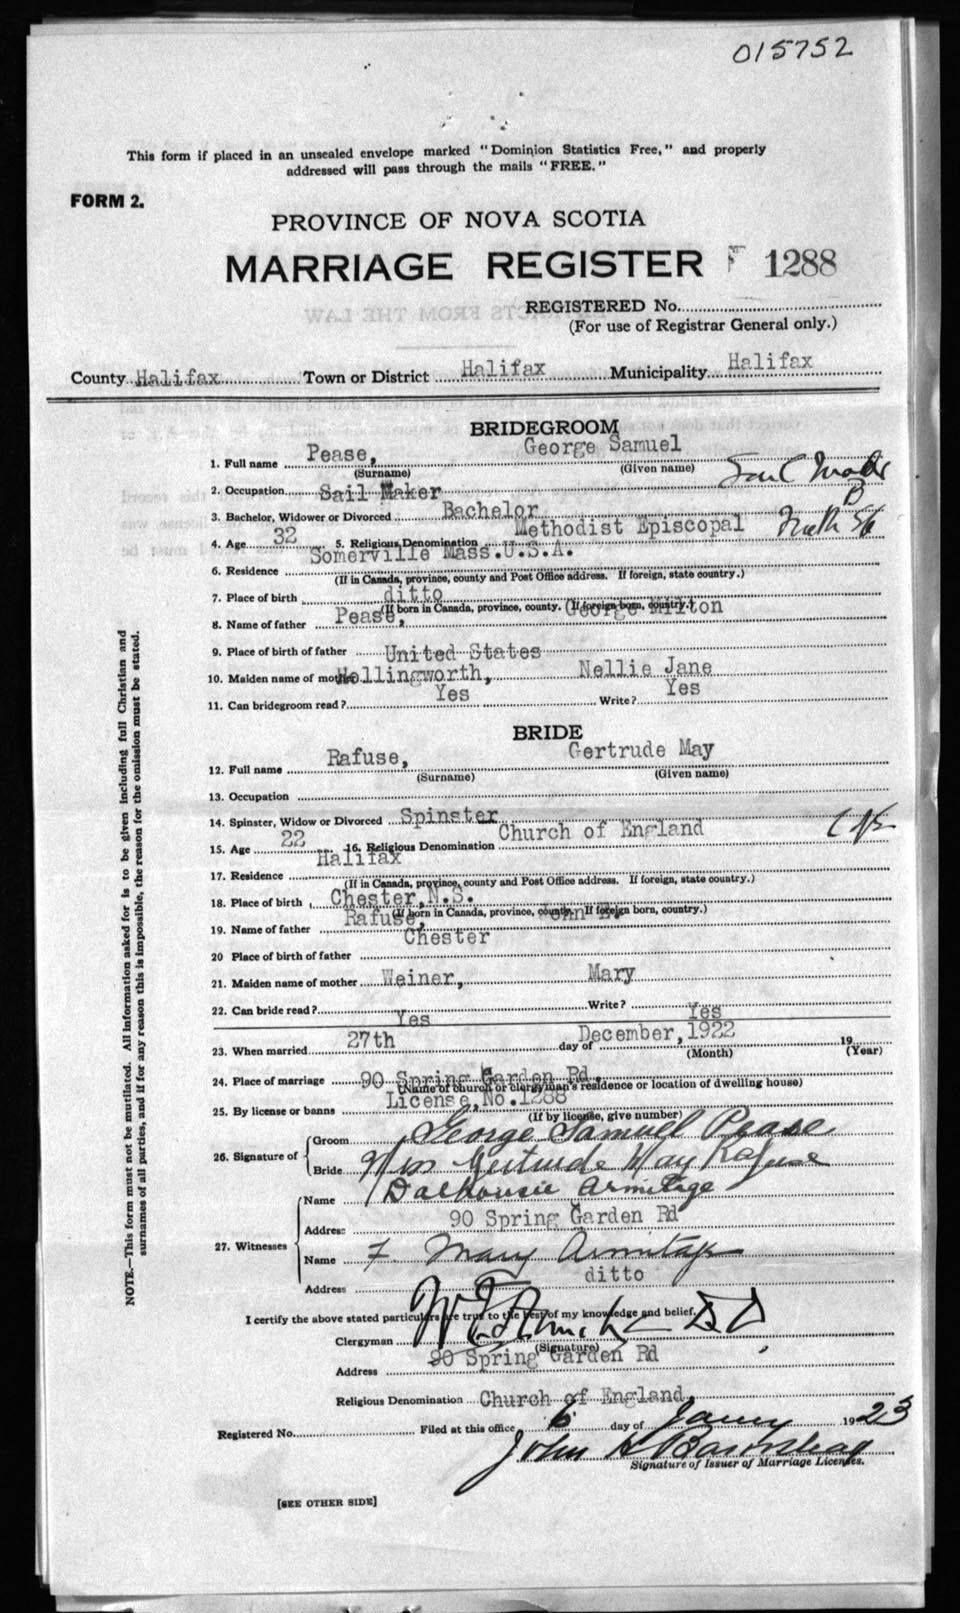 015752
This form if placed in an unsealed envelope marked "Dominion Statistics Free," and properly
addressed will pass through the mails "FREE."
FORM 2.
PROVINCE OF NOVA SCOTIA
MARRIAGE REGISTER 1288
REGISTERED No.
(For use of Registrar General only.)
County Halifax Town or District Halifax Municipality Halifax
BRIDEGROOM
1. Full name Pease, George Samuel
(Surname) (Given name)
2. Occupation Sail Maker
3. Bachelor, Widower or Divorced Bachelor B
4. Age 32 5. Religious Denomination Methodist Episcopal
6. Residence Somerville Mass.U.S.A.
(If in Canada, province, county and Post Office address. If foreign, state country.)
7. Place of birth ditto
(If born in Canada, province, county. If foreign born, country.)
8. Name of father Pease, George Milton
9. Place of birth of father United States
10. Maiden name of mother Hollingworth, Nellie Jane
11. Can bridegroom read? Yes Write? Yes
BRIDE
12. Full name Rafuse, Gertrude May
(Surname) (Given name)
13. Occupation
14. Spinster, Widow or Divorced Spinster
15. Age 22 16. Religious Denomination Church of England
17. Residence Halifax
(If in Canada, province, county and Post Office address. If foreign, state country.)
18. Place of birth Chester,N.S.
(If born in Canada, province, county. If foreign born, country.)
19. Name of father Rafuse, John E.
20 Place of birth of father Chester
21. Maiden name of mother Weiner, Mary
22. Can bride read? Yes Write? Yes
23. When married 27th day of December,1922 19
(Month) (Year)
24. Place of marriage 90 Spring Garden Rd.
(Name of church or clergyman's residence or location of dwelling house)
25. By license or banns License,No.1288
(If by license, give number)
26. Signature of Groom George Samuel Pease
Bride Miss Gertrude May Rafuse
27. Witnesses Name Dalhousie Armitage
Address 90 Spring Garden Rd
Name F. Mary Armitage
Address ditto
I certify the above stated particulars are true to the best of my knowledge and belief.
Clergyman
(Signature)
Address 90 Spring Garden Rd
Religious Denomination Church of England.
Registered No. Filed at this office 6 day of Jany 1923
John
Signature of Issuer of Marriage Licenses.
[SEE OTHER SIDE]
NOTE.—This form must not be mutilated. All information asked for is to be given including full Christian and
surnames of all parties, and if for any reason this is impossible, the reason for the omission must be stated.